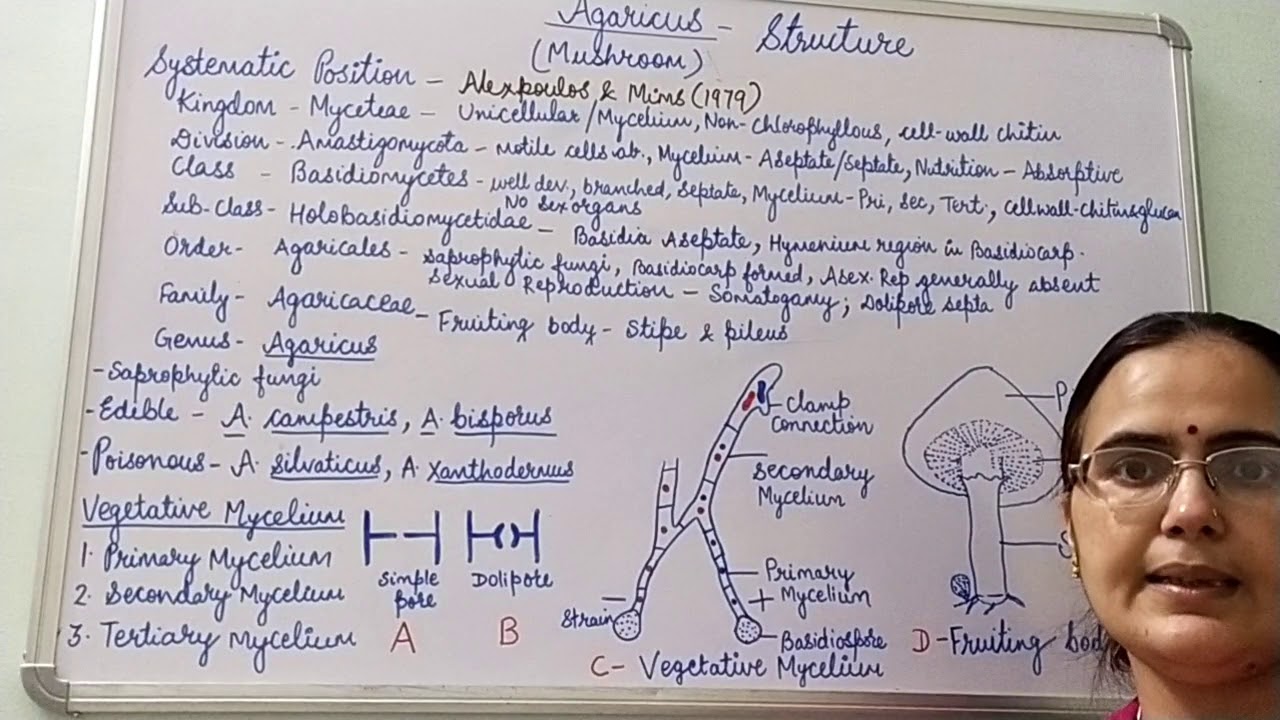 Agaricus - Structure
(Mushroom)
Systematic Position - Alexpoulos & Mims (1979)
Kingdom - Myceteae - Unicellular/Mycelium, Non-Chlorophyllous, cell-wall chitin
Division - Amastigomycota - motile cells ab., Mycelium - Aseptate/Septate, Nutrition - Absorptive
Class - Basidiomycetes - well dev., branched, Septate, Mycelium - Pri, Sec, Tert., Cellwall-chitin&glucan
No sex organs
Sub-Class - Holobasidiomycetidae - Basidia Aseptate, Hymenium region in Basidiocarp.
Order - Agaricales - Saprophytic fungi, Basidiocarp formed, Asex. Rep generally absent
Sexual Reproduction - Somatogamy; Dolipore septa
Family - Agaricaceae - Fruiting body - Stipe & pileus
Genus - Agaricus
- Saprophytic fungi
- Edible - A. campestris, A. bisporus
- Poisonous - A. silvaticus, A. xanthodermus
Vegetative Mycelium
1. Primary Mycelium
2. Secondary Mycelium
3. Tertiary Mycelium
Simple
pore
A
Dolipore
B
Clamp
Connection
Secondary
Mycelium
Primary
Mycelium
- +
Strain
Basidiospore
C- Vegetative Mycelium
P
S
D- Fruiting bod